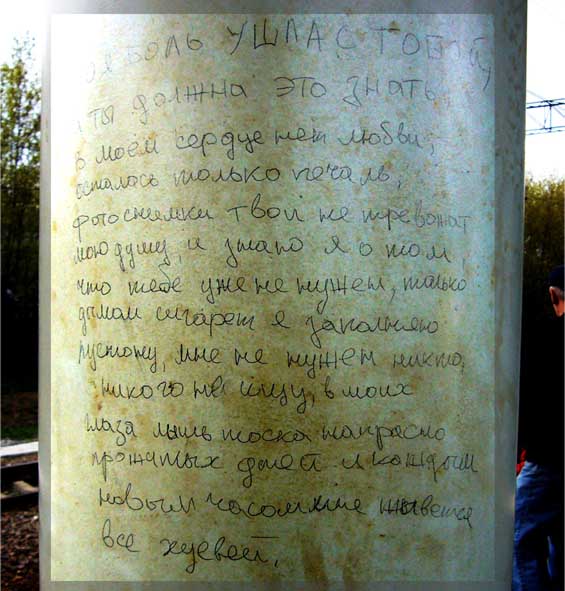 моя боль ушла с тобой,
ты должна это знать,
в моем сердце нет любви,
осталось только печаль,
фотоснимки твои не тревожат
мою душу, и знаю я о том,
что тебе уже не нужен, только
дымом сигарет я заполняю
пустоту, мне не нужен никто,
никого не ищу, в моих
глаза лышь тоска напрасно
прожитых дней и каждым
новым часом мне жывется
все хуевей.